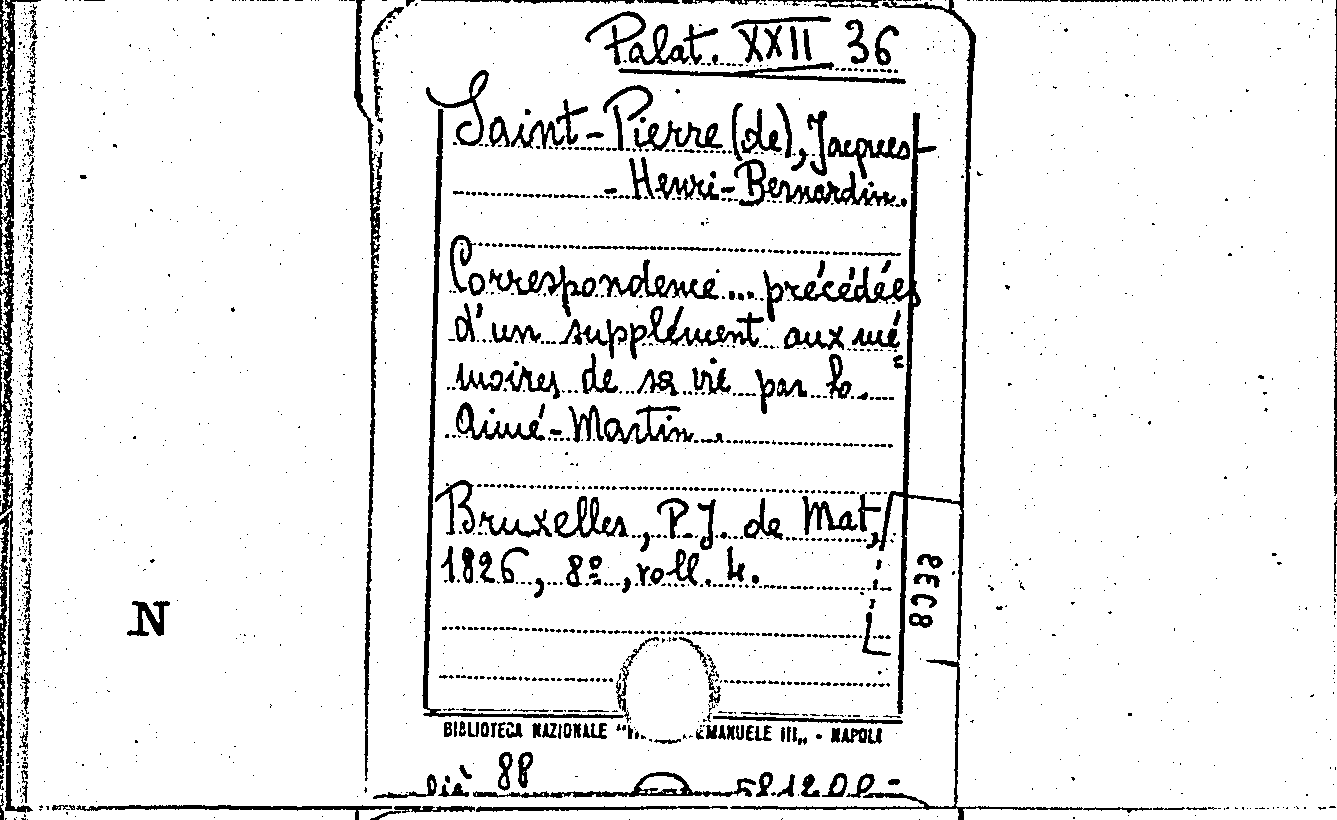 Palat. XXII 36
Saint-Pierre (de), Jacques-
- Henri-Bernardin.
Correspondence... précédées
d'un supplément aux mé=
moires de sa vie par L.
Aimé-Martin.
Bruxelles, P.J. de Mat,
1826, 8º, voll. 4.
N
BIBLIOTECA NAZIONALE "VI EMANUELE III„ - NAPOLI
già 88